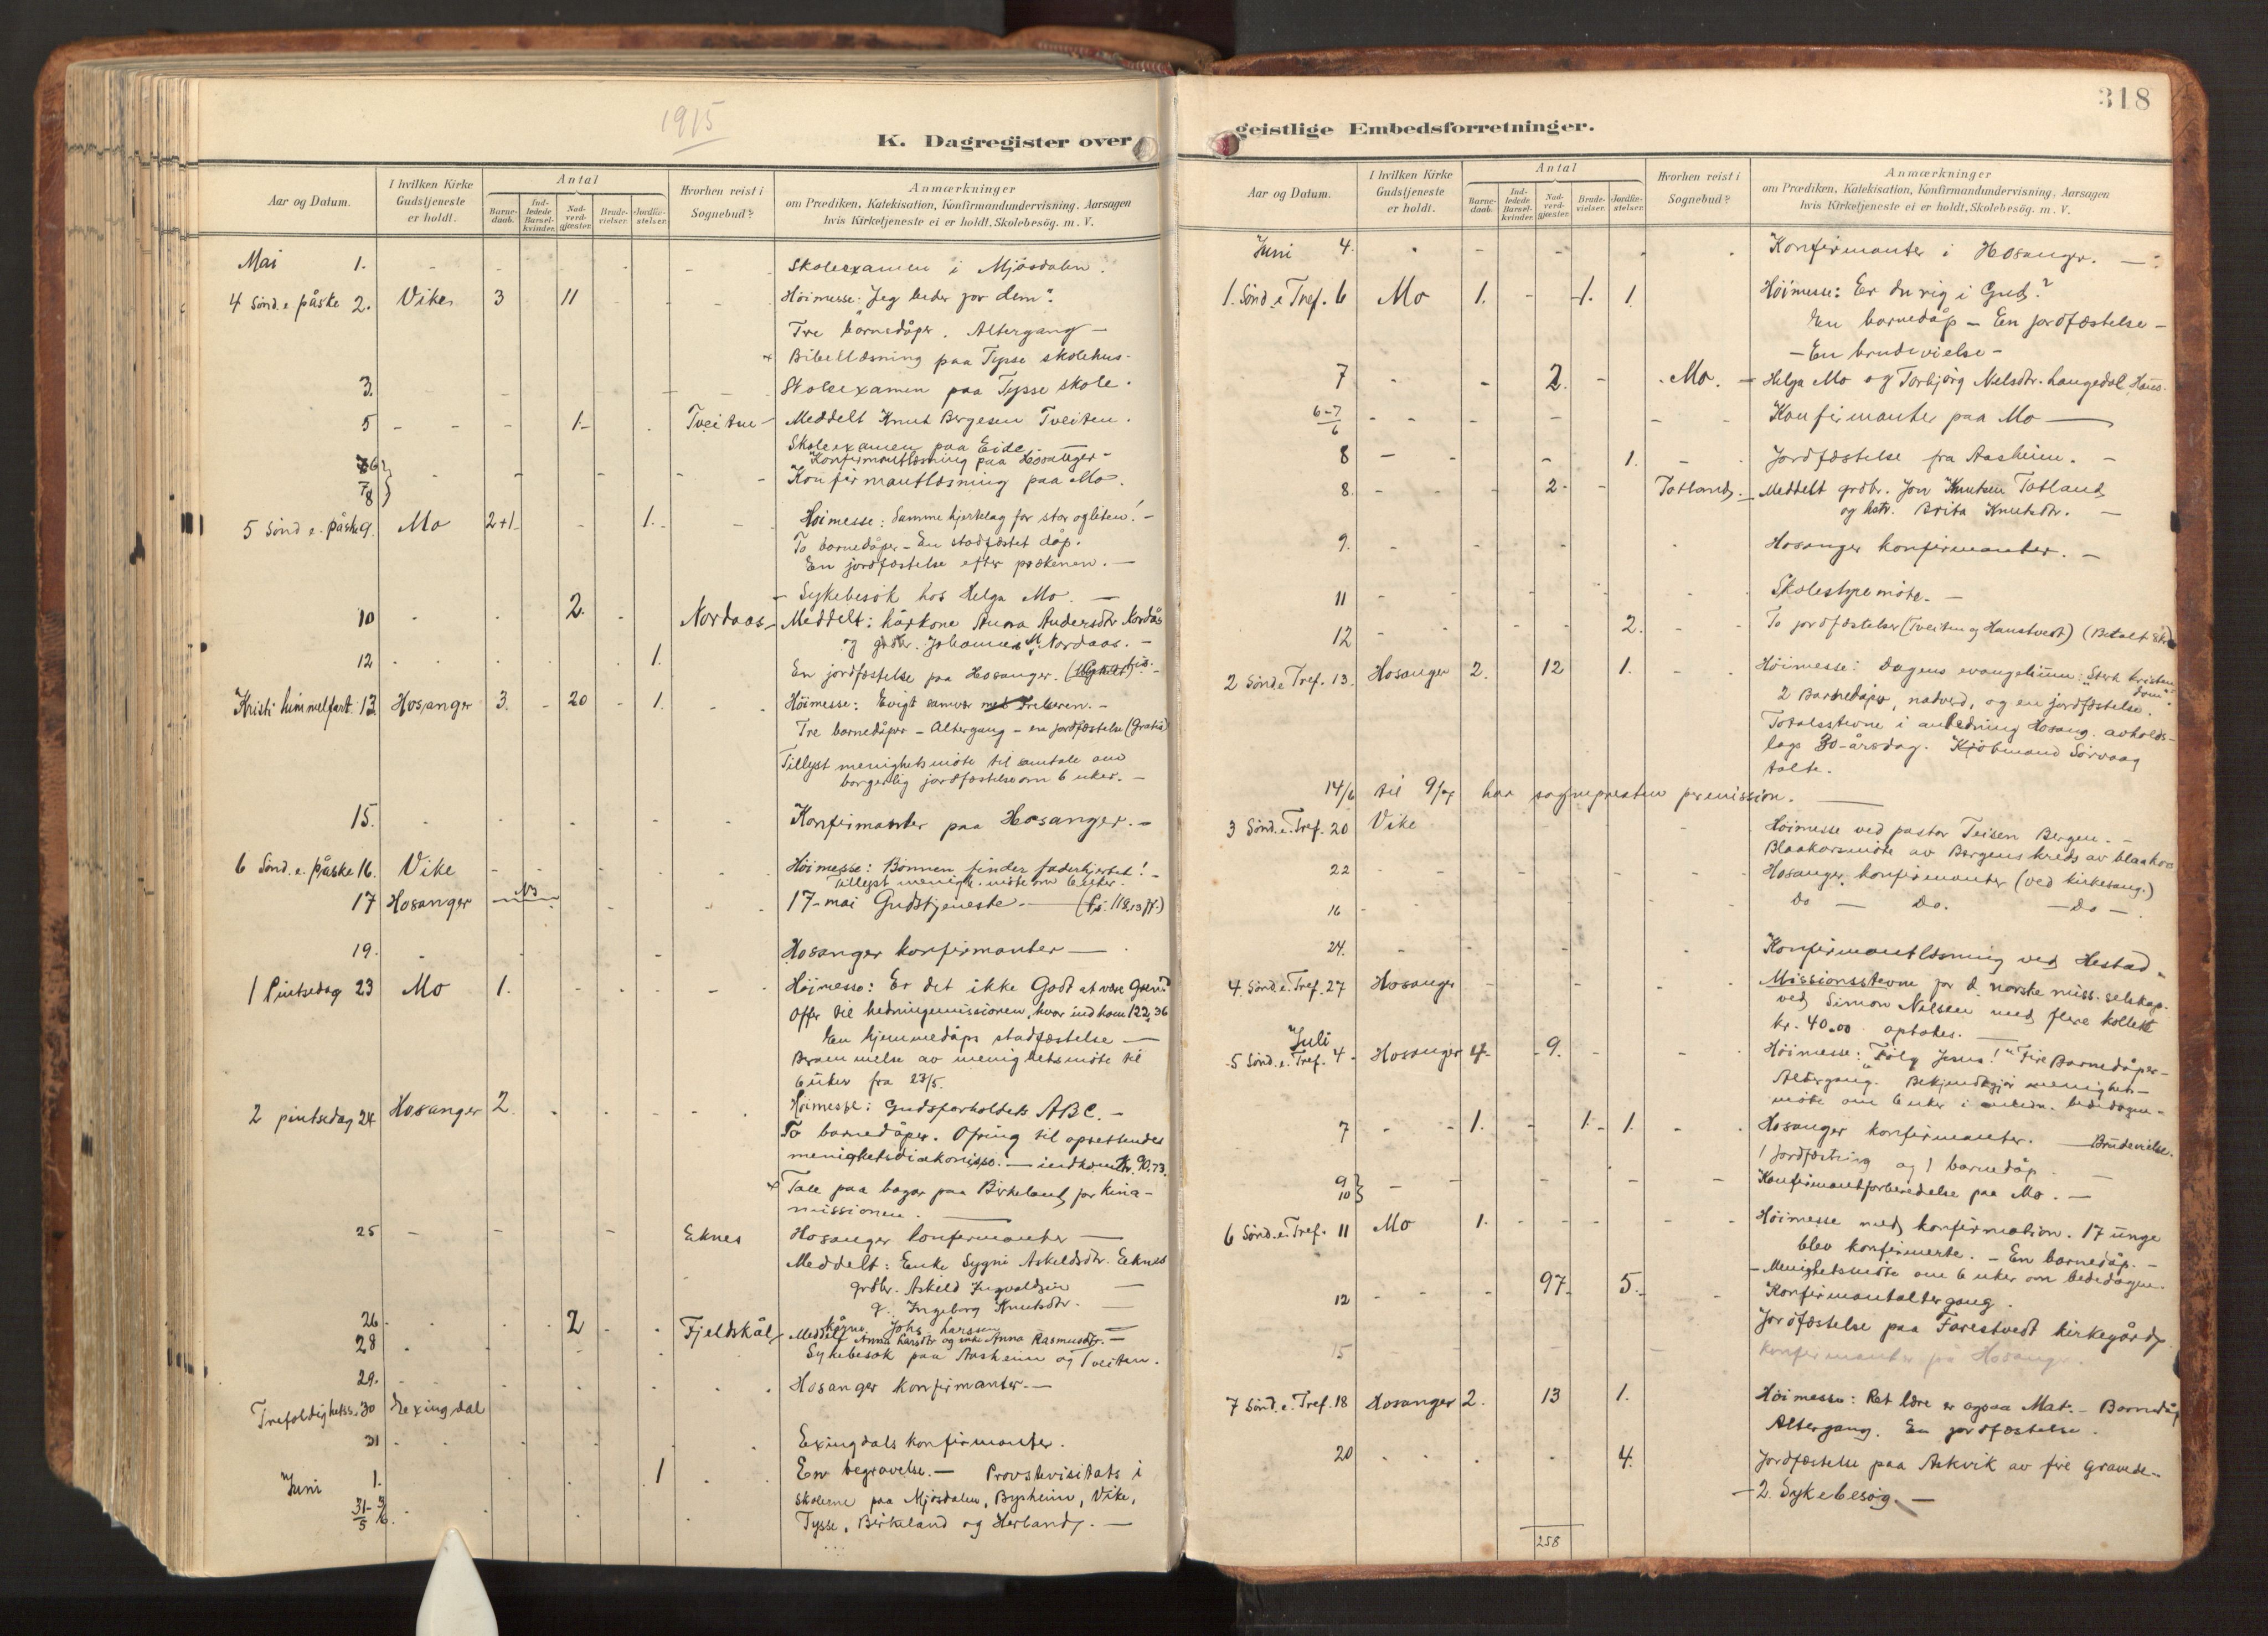 1915
K. Dagregister over
Aar og Datum.
I hvilken Kirke Gudstjeneste er holdt.
Antal
Barne-daab.
Ind-ledede Barsel-kvinder.
Nad-verd-gjæster.
Brude-vielser.
Jordfæ-stelser.
Hvorhen reist i Sognebud?
Anmærkninger
om Prædiken, Katekisation, Konfirmandundervisning, Aarsagen
hvis Kirketjeneste ei er holdt, Skolebesög. m. V.
Mai 1. - - - - - - Skoleexamen i Mjösdalen.
4 Sönd. e. påske 2. Vike 3 11 Höimesse: "Jeg beder for dem".
Tre barnedåper. Altergang -
Bibellæsning paa Tysse skolehus.
3. Skoleexamen paa Tysse skole.
5 - - - 1. - Tveiten - Meddelt Knut Bergesen Tveiten.
Skoleexamen paa Eide.
6 Konfirmantlæsning paa Hosanger -
7/8 Konfirmantlæsning paa Mo.
5 Sönd e. påske 9. Mo 2+1 - 1. - Höimesse: Samme hjertelag for stor og liten! -
To barnedåper - En stadfæstet dåp.
En jordfæstelse efter prækenen. -
- Sykebesök hos Helga Mo. -
10 2. Nordaas - Meddelt: kårkone Anna Andersdtr Nordås
og grdbr. Johannes M. Nordaas. -
12 1. En jordfæstelse paa Hosanger.
Kristi himmelfart. 13. Hosanger 3. - 20 - 1. Höimesse: Evigt samvær med Frelseren. -
Tre barnedåper - Altergang - en jordfæstelse (Gratis)
Tillyst menighetsmöte til samtale om
borgerlig jordfæstelse om 6 uker. -
15. Konfirmanter paa Hosanger. -
6 Sönd. e. påske 16. Vike Höimesse: Bönnen finder faderhjertet! -
Tillyst menigh. möte om 6 uker.
17 Hosanger 17-mai Gudstjeneste. - (Ps. 118,13 ff.)
19. Hosanger konfirmanter -
1 Pintsedag 23 Mo 1. Höimesse: Er det ikke Godt at være
Offer til hedningemissionen, hvor indkom 122,36
En hjemmedåps stadfæstelse -
Berammelse av menighetsmöte til
6 uker fra 23/5.
2 pintsedag 24 Hosanger 2. Höimesse: Gudsforholdets ABC. -
To barnedåper. Ofring til oprettendes
menighetsdiakonisse. - indkom Kr. 90.73.
Tale paa bazar paa Birkeland for Kina-
missionen.
25 Eknes Hosanger konfirmanter -
Meddelt: Enke Sygni Askeldsdtr. Eeknes
grdbr. Askild Ingvaldsen -
g. Ingeborg Knutsdtr. -
26 2 Fjeldskål kårm. Johs. Larssen
Meddelt Anna Larsdtr og enke Anna Rasmusdtr. -
28 Sykebesök paa Aasheim og Tveiten.
29. Hosanger konfirmanter. -
Trefoldighetss. 30 Eexingdal
31 Exingdals konfirmanter.
Juni 1. 1 En begravelse. - Provstevisitats i
31/5 - 3/6. skolerne paa Mjösdalen, Bysheim, Vike,
Tysse, Birkeland og Herland. -
318
geistlige Embedsforretninger.
Aar og Datum.
I hvilken Kirke Gudstjeneste er holdt.
Antal
Barne-daab.
Ind-ledede Barsel-kvinder.
Nad-verd-gjæster.
Brude-vielser.
Jordfæ-stelser.
Hvorhen reist i Sognebud?
Anmærkninger
om Prædiken, Katekisation, Konfirmandundervisning, Aarsagen
hvis Kirketjeneste ei er holdt, Skolebesög. m. V.
Juni 4. Konfirmanter i Hosanger. -
1. Sönd. e. Tref. 6 Mo 1. - 1. 1. Höimesse: Er du rig i Gud?
En barnedåp - En jordfæstelse -
- En brudevielse -
7 2. Mo. - Helga Mo og Torbjörg Nielsdtr. Langedal, Haus.
6-7/6 Konfirmanter paa Mo -
8 1. Jordfæstelse fra Aasheim. -
8. 2. Totland. - Meddelt grdbr. Jon Knutsen Totland
og hstr. Brita Knutsdtr. -
9. Hosanger konfirmanter. -
11 Skolestyremöte. -
12 2. To jordfæstelser (Tveiten og Haustvedt) (Betalt 8 kr.)
2 Sönd e Tref. 13. Hosanger 2. 12 1. Höimesse: Dagens evangelium: "Sterk kristen-
dom".
2 Barnedåper, nadverd, og en jordfæstelse.
Totalsstevne i anledning Hosang. avholds-
lags 30-årsdag. Kjöbmand Sörvaag
talte.
14/6 til 9/7 har sognepresten permission. -
3 Sönd. e. Tref. 20 Vike Höimesse ved pastor Teisen Bergen. -
Blaakorsmöte av Bergens kreds av blaakors
22 Hosanger konfirmanter (ved kirkesang.)
16 Do - Do. - Do -
24. Konfirmantlæsning ved Hestad.
4. Sönd. e. Tref. 27 Hosanger Missionsstevne for d. norske miss. selskap.
ved Simon Nilsen med flere kollekt
kr. 40.00 optokes.
Juli
5 Sönd. e. Tref. 4 - Hosanger 4 - 9. Höimesse: "Fölg Jesus!" Fire Barnedåper -
Altergang. Bekjendtgjör menighets-
möte om 6 uker i anledn. bededagen -
7 1. 1. 1. Hosanger konfirmanter. - Brudevielse.
1 Jordfæstning og 1 barnedåp.
9 10 Konfirmantforberedelse paa Mo. -
6 Sönd. e. Tref. 11 Mo 1. Höimesse med konfirmation. 17 unge
blev konfirmerte. - En barnedåp. -
- Menighetsmöte om 6 uker om bededagen.
12 97 5. Konfirmantaltergang.
Jordfæstelse paa Farestvedt kirkegård.
15 Konfirmanter på Hosanger.
7 Sönd. e. Tref. 18 Hosanger 2. 13 1. Höimesse: Ret lære er ogsaa Mat. - Barnedåp
Altergang. En jordfæstelse.
20 4. Jordfæstelse paa Askvik av fire Gravede. -
- 2. Sykebesög. -
258